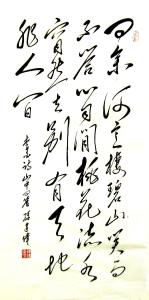 问余何意棲碧山笑而
不答心自闲桃花流水
窅然去别有天地
非人间
李白诗山中问答